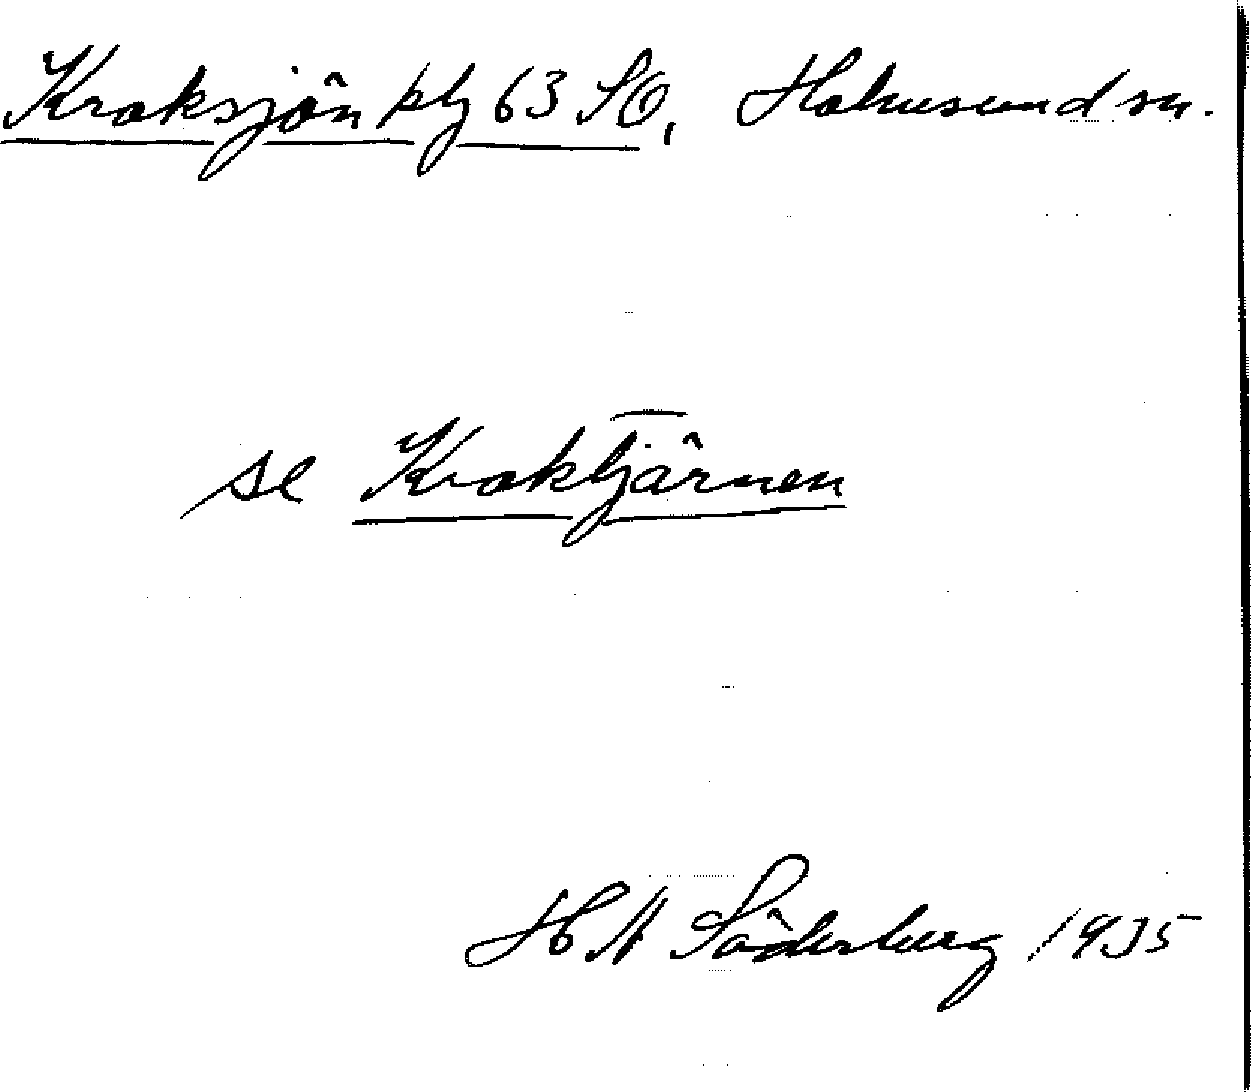 Kroksjön kbl 63 SO, Holmsund sn.
se Kroktjärnen
H N Söderberg 1935